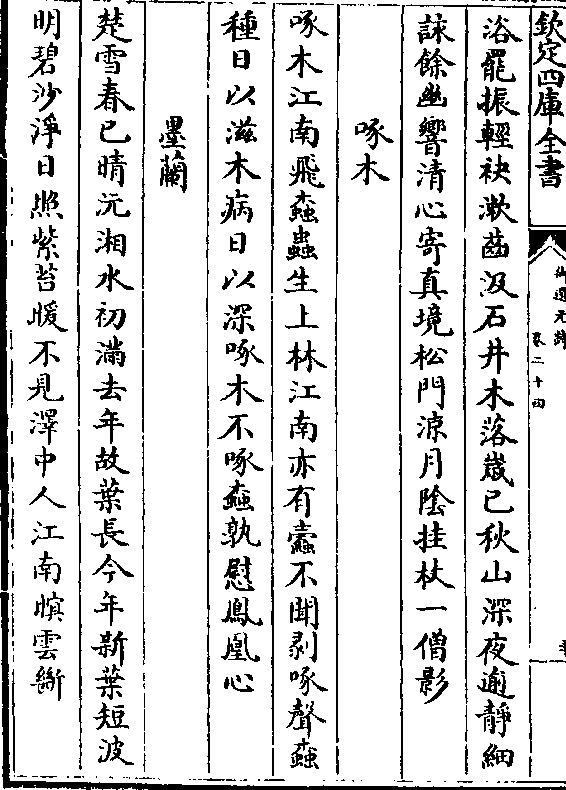 欽定四庫全書
御選元詩
卷二十四
浴罷振輕袂漱齒汲石井木落歲已秋山深夜逾靜細
詠餘幽響清心寄真境松門涼月陰挂杖一僧影
啄木
啄木江南飛蠹蟲生上林江南亦有蠹不聞剥啄聲蠹
種日以滋木病日以深啄木不啄蠹孰慰鳳凰心
墨蘭
楚雪春已晴沅湘水初滿去年故葉長今年新葉短波
明碧沙淨日照紫苔暖不見澤中人江南愼雲斷